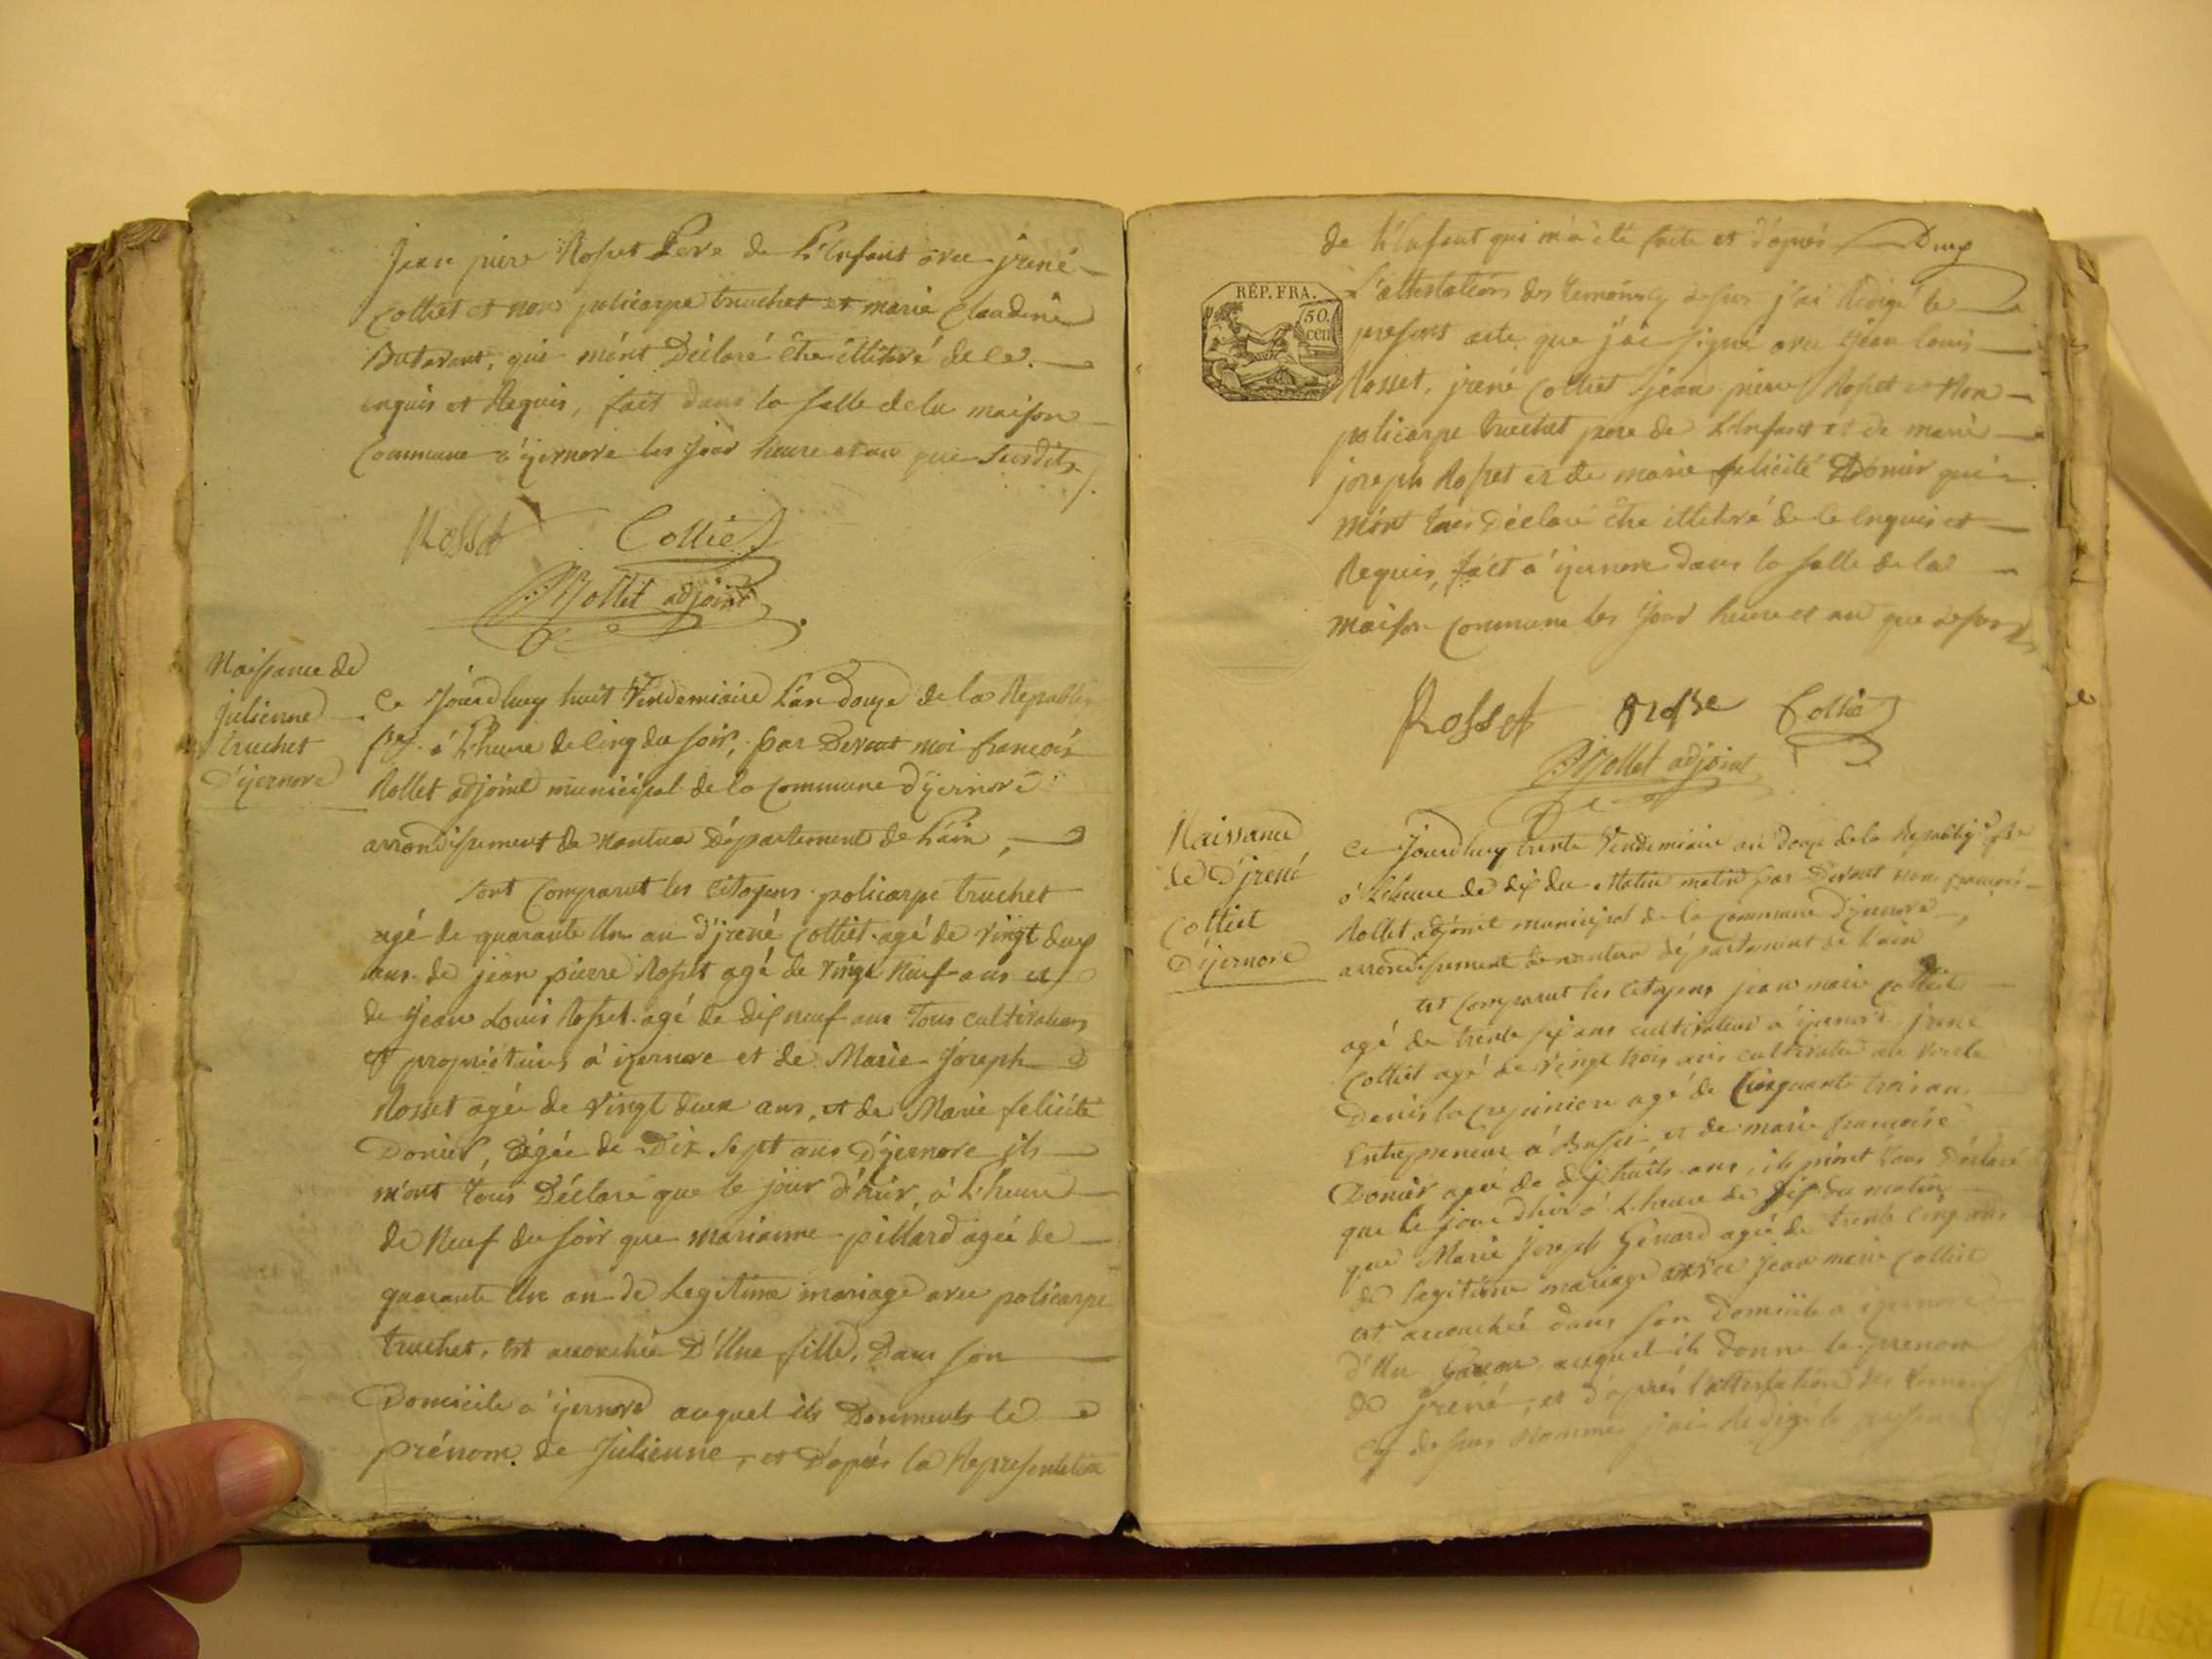 Jean piere Rosset Pere de L'Enfant avec jrené
Colliet et non policarpe truchet et marie Claudine
Butavant, qui m'ont Déclaré être illitéré de ce
enquis et Requis, fait dans la salle de la maison
Commune a yzernore les jour heure et an que susdits
Rosset Colliet
Rollet adjoint
Naissance de
Julienne
truchet
D'yzernore
Ce Jourdhuy huit Vendemiaire L'an douze de la Republi
fse à L'heure de Cinq du soir, par Devant moi françois
Rollet adjoint municipal de la Commune d'yzernore
arrondissement de Nantua Département de L'ain,
sont Comparut les Citoyens policarpe truchet
agé de quarante Un an d'jrené Colliet agé de Vingt deux
ans de jean pierre Rosset agé de Vingt Neuf ans et
de Jean Louis Rosset agé de dix neuf ans Tous cultivateurs
et propriétaires à izernore et de Marie Joseph
Rosset agée de Vingt deux ans, et de Marie felicité
Donier, agée de Dix Sept ans D'yzernore ils
m'ont tous Déclaré que le jour d'hier, à L'heure
de Neuf du soir que marianne pillard agée de
quarante Un an de Legitime mariage avec policarpe
truchet, est accouchée D'Une fille, Dans son
Domicile a yzernore auquel ils Donnents le
prénom de Julienne, et D'après la Representation
de L'Enfant qui m'a été faite et d'après Douze
L'attestation des temoins cy dessus j'ai Redigé le
RÉP. FRA.
50
cen
present acte que j'ai signé avec jean louis
Rosset, jrené Colliet jean pierre Rosset et Non
policarpe truchet pere de L'Enfant et de marie
joseph Rosset et de marie felicité Donier qui
m'ont tous Déclaré être illitéré de ce Enquis et
Requis, fait à yzernore dans la salle de la
maison Commune les jour heure et an que dessus
Rosset Colliet
Rollet adjoint
Naissance
de D'jrené
Colliet
D'yzernore
Ce Jourdhuy trente Vendemiaire an douze de la Republiq fse
à L'heure de dix du Matin matin par Devant moi françois
Rollet adjoint municipal de la Commune d'yzernore,
arrondissement de nantua département de l'ain
est Comparut les Citoyens jean marie Colliet
agé de trente six ans cultivateur à yzernore jrené
Colliet agé de Vingt trois ans cultivateur au
Denis la agé de Cinquante trois ans
Entrepreneur à et de marie françoise
Donier agée de dix huits ans, ils m'ont tous Déclaré
que le jour d'hier à L'heure de six du matin
que Marie Joseph Genard agée de trente Cinq ans
de Legitime mariage avec Jean marie Colliet
est accouchée dans son Domicile a izernore
d'Un Garçon, auquel ils donne le prenom
de jrené, et d'après l'attestation des temoins
cy dessus Nommés j'ai Redigé le present